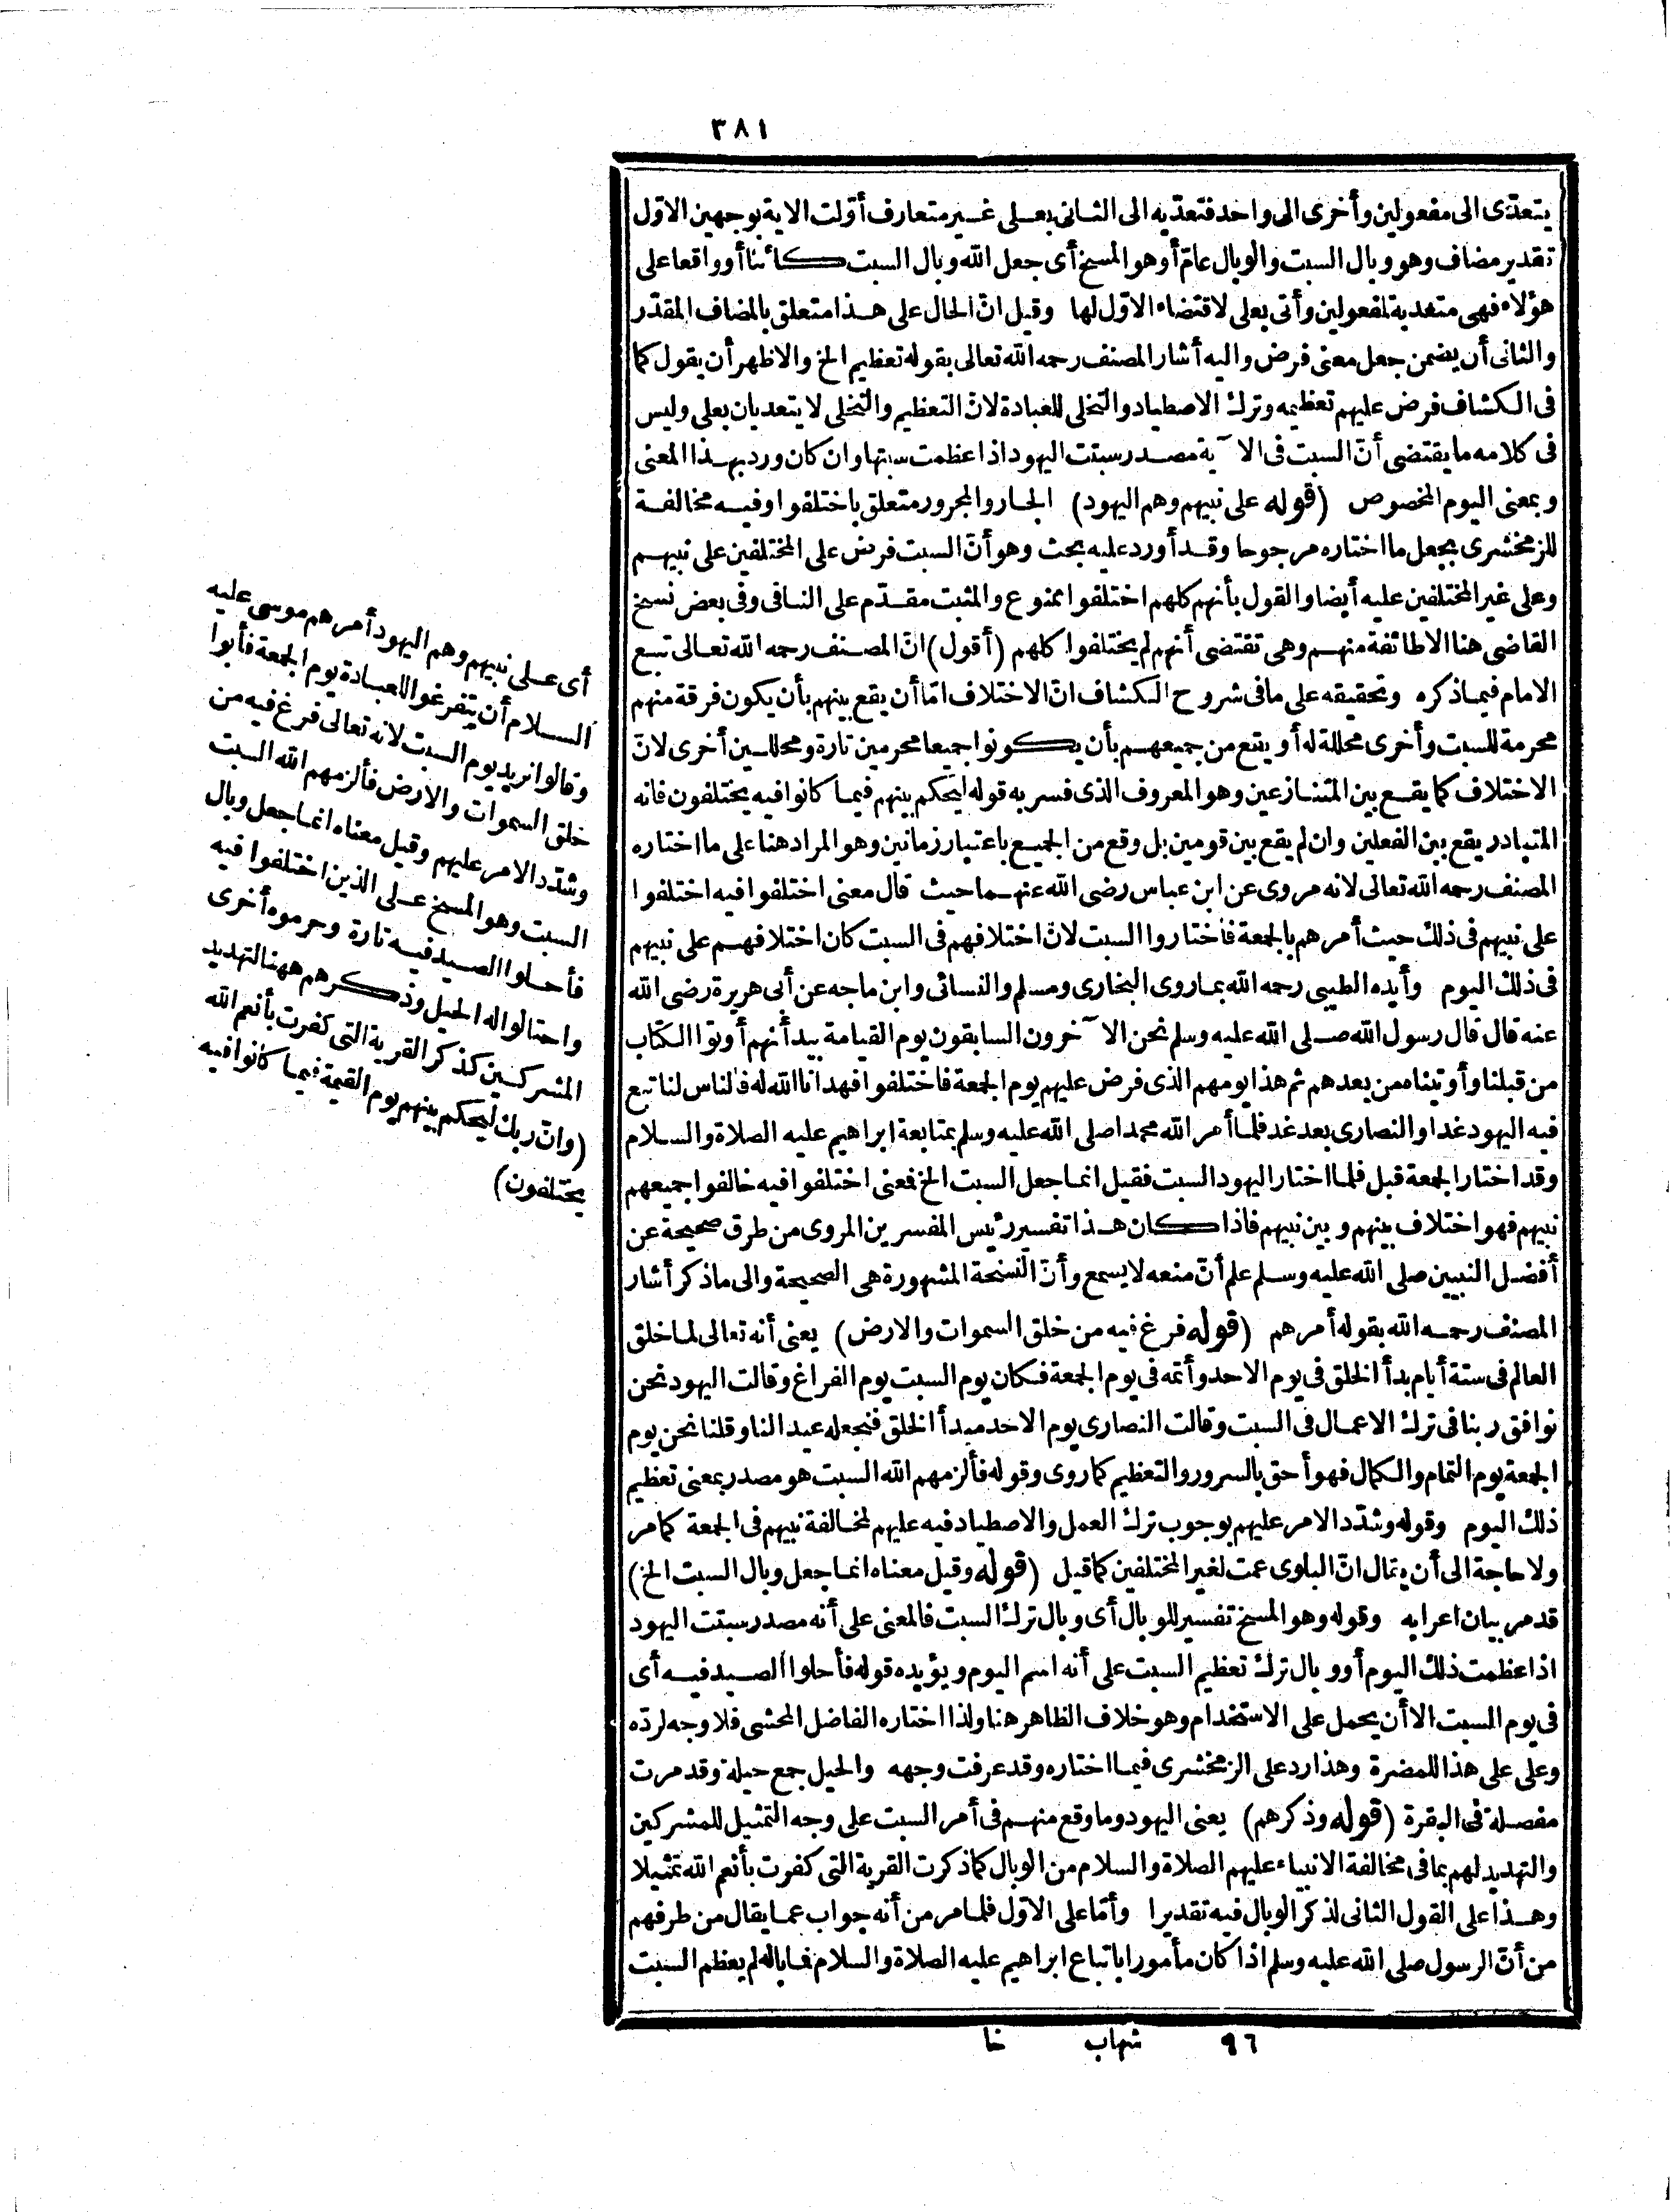 ٣٨١
يتعدّى الى مفعولين وأخرى الى واحد فتعدّيه الى الثانى بعلى غير متعارف أوّلت الاية بوجهين الاوّل
تقدير مضاف وهو وبال السبت والوبال عامّ أو هو المسخ أى جعل الله وبال السبت كائنا أو واقعا على
هؤلاء فهى متعدية لمفعولين وأتى بعلى لاقتضاء الاوّل لها وقيل انّ الحال على هذا متعلق بالمضاف المقدّر
والثانى أن يضمن جعل معنى فرض واليه أشار المصنف رحمه الله تعالى بقوله تعظيم الخ والاظهر أن يقول كما
فى الكشاف فرض عليهم تعظيمه وترك الاصطياد والتخلى للعبادة لانّ التعظيم والتخلى لا يتعديان بعلى وليس
فى كلامه ما يقتضى أنّ السبت فى الآية مصدر سبتت اليهود اذا عظمت سبتها وان كان ورد بهذا المعنى
وبمعنى اليوم المخصوص (قوله على نبيهم وهم اليهود) الجار والمجرور متعلق باختلفوا وفيه مخالفة
للزمخشرى بجعل ما اختاره مرجوحا وقد أورد عليه بحث وهو أنّ السبت فرض على المختلفين على نبيهم
وعلى غير المختلفين عليه أيضا والقول بأنهم كلهم اختلفوا ممنوع والمثبت مقدّم على النافى وفى بعض نسخ
القاضى هنا الاطائفة منهم وهى تقتضى أنهم لم يختلفوا كلهم (أقول) انّ المصنف رحمه الله تعالى تبع
الامام فيما ذكره وتحقيقه على ما فى شروح الكشاف انّ الاختلاف امّا أن يقع بينهم بأن يكون فرقة منهم
محرمة للسبت وأخرى محللة له أو يقع من جميعهم بأن يكونوا جميعا محرمين تارة ومحللين أخرى لانّ
الاختلاف كما يقع بين المتنازعين وهو المعروف الذى فسر به قوله ليحكم بينهم فيما كانوا فيه يختلفون فانه
المتبادر يقع بين الفعلين وان لم يقع بين قومين بل وقع من الجميع باعتبار زمانين وهو المراد هنا على ما اختاره
المصنف رحمه الله تعالى لانه مروى عن ابن عباس رضى الله عنهما حيث قال معنى اختلفوا فيه اختلفوا
على نبيهم فى ذلك حيث أمرهم بالجمعة فاختاروا السبت لانّ اختلافهم فى السبت كان اختلافهم على نبيهم
فى ذلك اليوم وأيده الطيبى رحمه الله بما روى البخارى ومسلم والنسائى وابن ماجه عن أبى هريرة رضى الله
عنه قال قال رسول الله صلى الله عليه وسلم نحن الآخرون السابقون يوم القيامة بيد أنهم أوتوا الكتاب
من قبلنا وأوتيناه من بعدهم ثم هذا يومهم الذى فرض عليهم يوم الجمعة فاختلفوا فهدانا الله له فالناس لنا تبع
فيه اليهود غدا والنصارى بعد غد فلما أمر الله محمدا صلى الله عليه وسلم بمتابعة ابراهيم عليه الصلاة والسلام
وقد اختار الجمعة قبل فلما اختار اليهود السبت فقيل انما جعل السبت الخ فمعنى اختلفوا فيه خالفوا جميعهم
نبيهم فهو اختلاف بينهم وبين نبيهم فاذا كان هذا تفسير رئيس المفسرين المروى من طرق صحيحة عن
أفضل النبيين صلى الله عليه وسلم علم أنّ منعه لا يسمع وأنّ النسخة المشهورة هى الصحيحة والى ما ذكر أشار
المصنف رحمه الله بقوله أمرهم (قوله فرغ فيه من خلق السموات والارض) يعنى أنه تعالى لما خلق
العالم فى ستة أيام بدأ الخلق فى يوم الاحد وأتمه فى يوم الجمعة فكان يوم السبت يوم الفراغ وقالت اليهود نحن
نوافق ربنا فى ترك الاعمال فى السبت وقالت النصارى يوم الاحد مبدأ الخلق فنجعله عيدا لنا وقلنا نحن يوم
الجمعة يوم التمام والكمال فهو أحق بالسرور والتعظيم كما روى وقوله فألزمهم الله السبت هو مصدر بمعنى تعظيم
ذلك اليوم وقوله وشدّد الامر عليهم بوجوب ترك العمل والاصطياد فيه عليهم لمخالفة نبيهم فى الجمعة كما مر
ولا حاجة الى أن يقال انّ البلوى عمت لغير المختلفين كما قيل (قوله وقيل معناه انما جعل وبال السبت الخ)
قد مر بيان اعرابه وقوله وهو المسخ تفسير للوبال أى وبال ترك السبت فالمعنى على أنه مصدر سبتت اليهود
اذا عظمت ذلك اليوم أو وبال ترك تعظيم السبت على أنه اسم اليوم ويؤيده قوله فأحلوا الصيد فيه أى
فى يوم السبت الا أن يحمل على الاستخدام وهو خلاف الظاهر هنا ولذا اختاره الفاضل المحشى فلا وجه لردّه
وعلى على هذا للمضرة وهذا رد على الزمخشرى فيما اختاره وقد عرفت وجهه والحيل جمع حيلة وقد مرت
مفصلة فى البقرة (قوله وذكرهم) يعنى اليهود وما وقع منهم فى أمر السبت على وجه التمثيل للمشركين
والتهديد لهم بما فى مخالفة الانبياء عليهم الصلاة والسلام من الوبال كما ذكرت القرية التى كفرت بأنعم الله تمثيلا
وهذا على القول الثانى لذكر الوبال فيه تقديرا وأمّا على الاوّل فلما مر من أنه جواب عما يقال من طرفهم
من أنّ الرسول صلى الله عليه وسلم اذا كان مأمورا باتباع ابراهيم عليه الصلاة والسلام فما باله لم يعظم السبت
أى على نبيهم وهم اليهود أمرهم موسى عليه
السلام أن يتفرغوا للعبادة يوم الجمعة فأبوا
وقالوا نريد يوم السبت لانه تعالى فرغ فيه من
خلق السموات والارض فألزمهم الله السبت
وشدّد الامر عليهم وقيل معناه انما جعل وبال
السبت وهو المسخ على الذين اختلفوا فيه
فأحلوا الصيد فيه تارة وحرموه أخرى
واحتالوا له الحيل وذكرهم ههنا لتهديد
المشركين كذكر القرية التى كفرت بأنعم الله
(وانّ ربك ليحكم بينهم يوم القيمة فيما كانوا فيه
يختلفون)
٩٦ شهاب خا